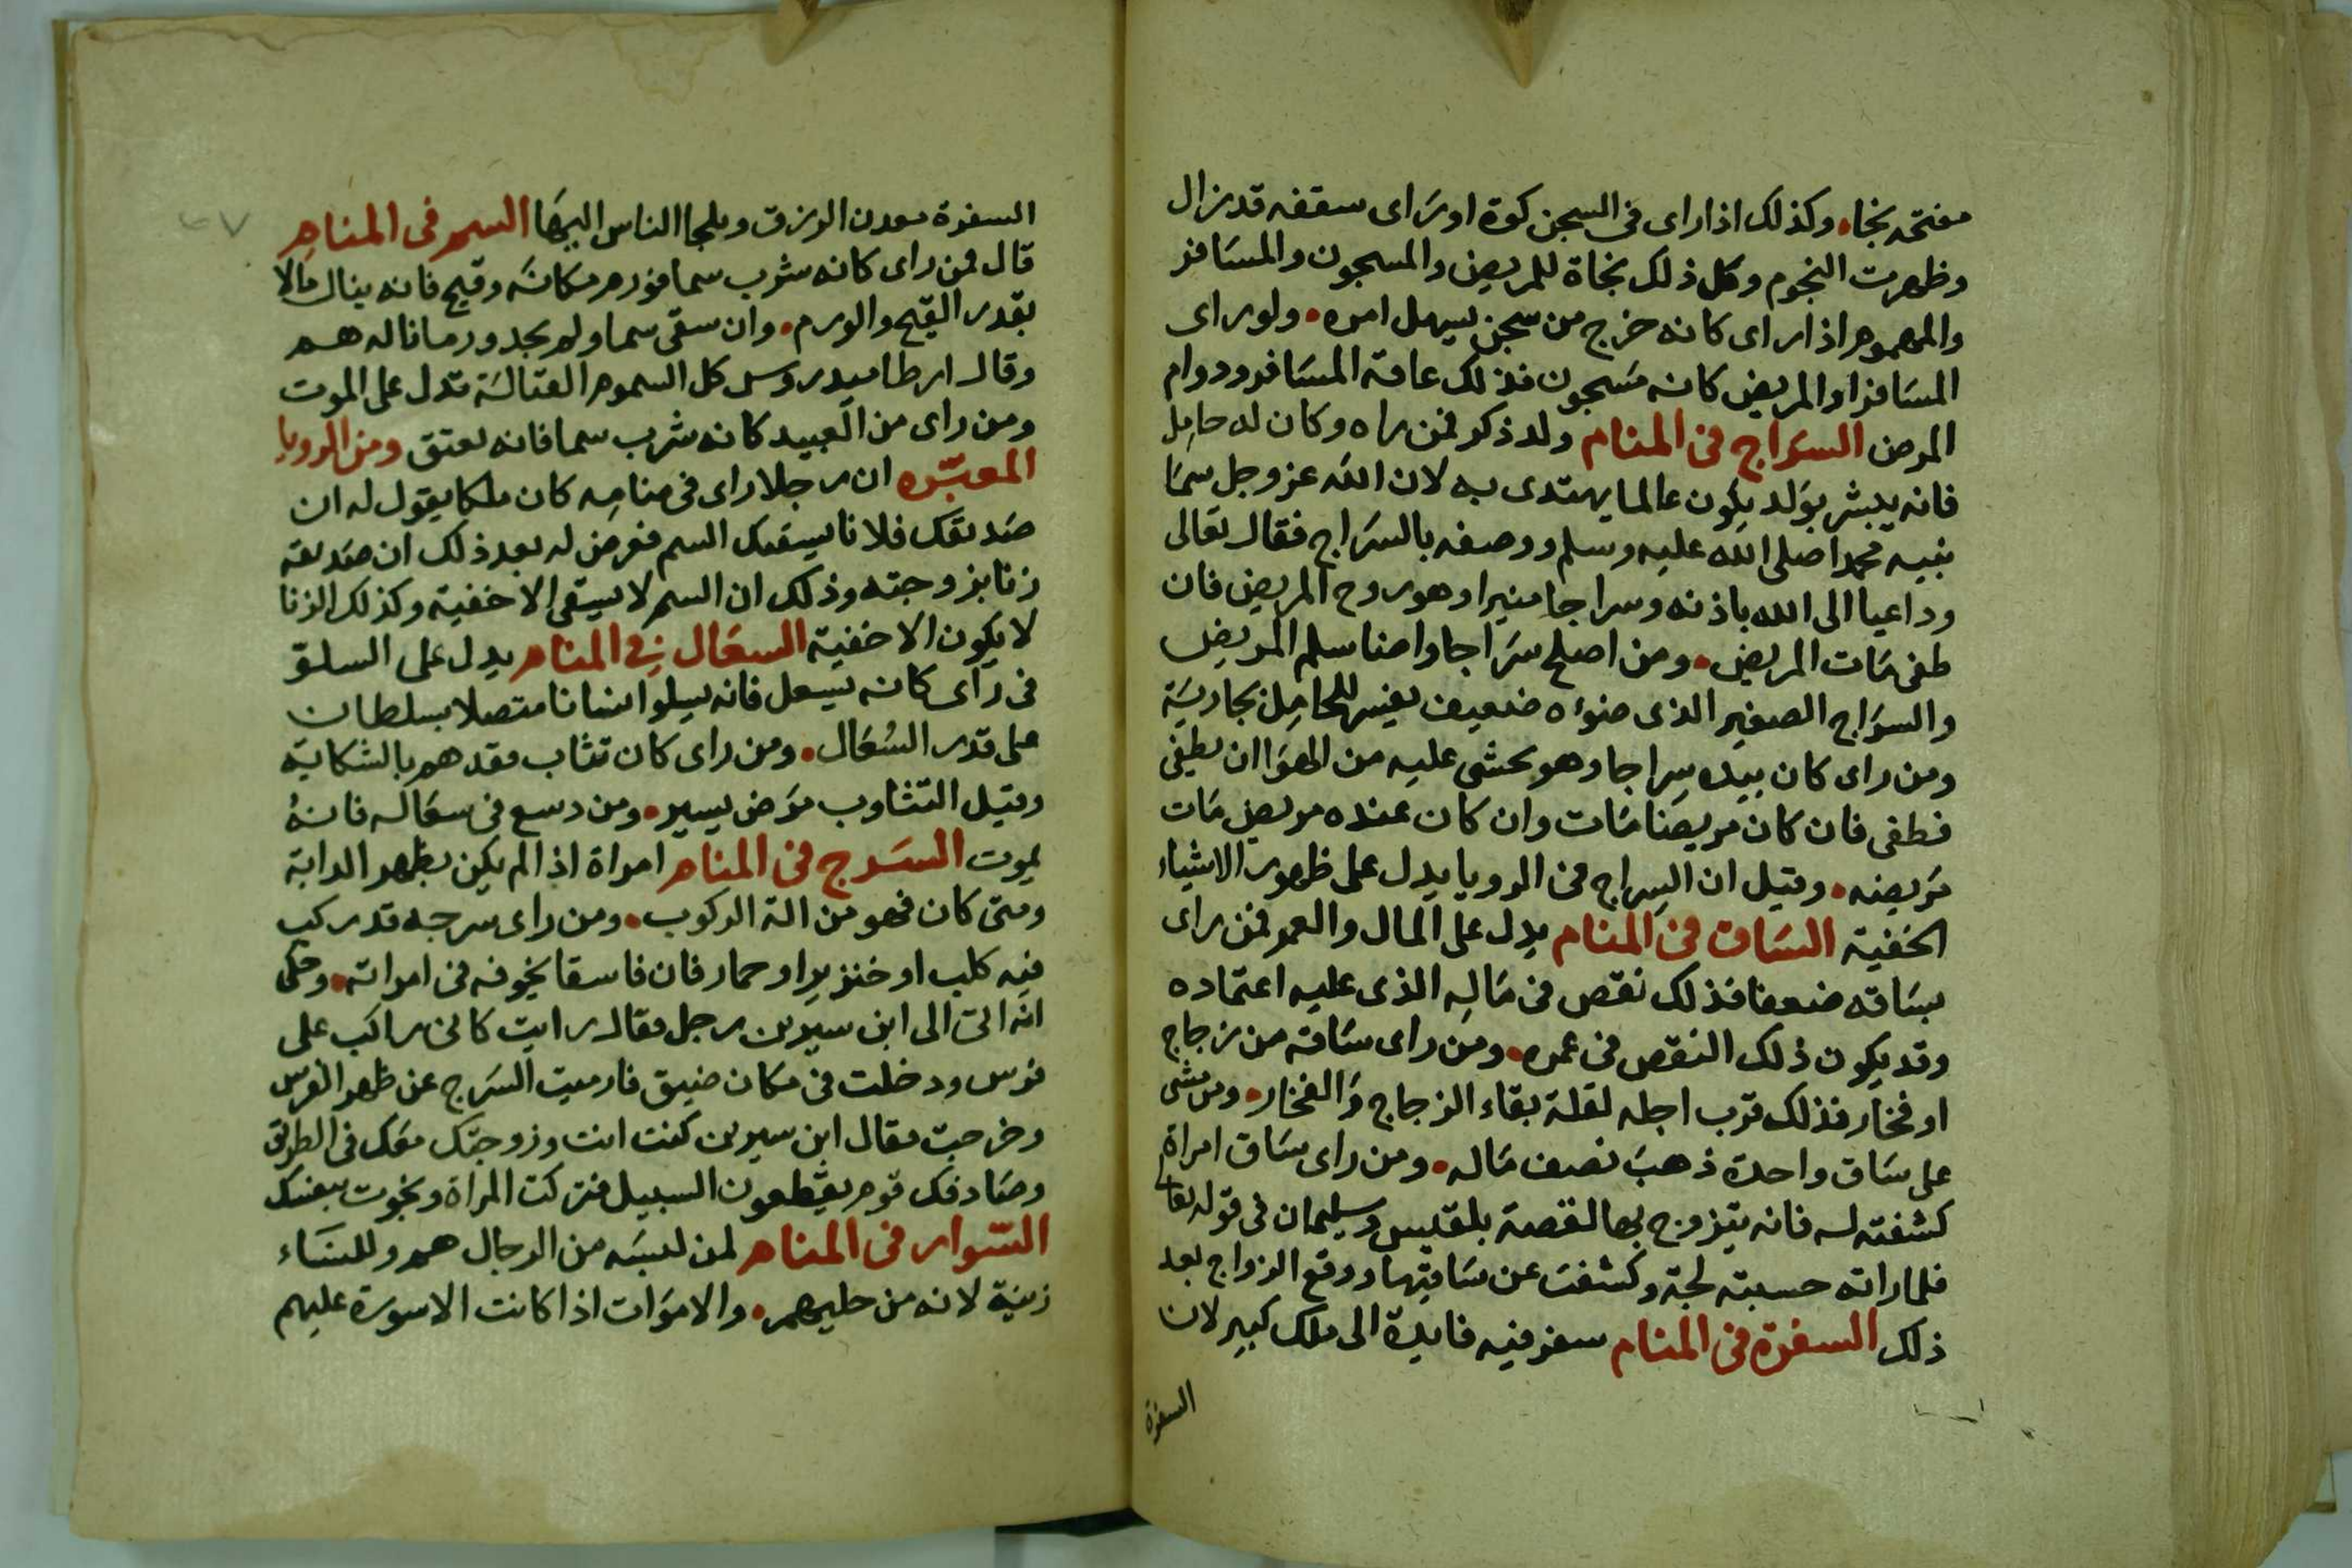 مفتحه نجا، وكذلك اذا راى فى السجن كوة او راى سقفه قد زال
وظهرت النجوم وكل ذلك نجاة للمريض والمسجون والمسافر
والمهموم اذا راى كانه خرج من سجن يسهل امره، ولو راى
المسافر او المريض كانه مسجون فذلك عاقة المسافر ودوام
المرض السراج فى المنام ولد ذكر فمن راه وكان له حامل
فانه يبشر بولد يكون عالما يهتدى به لان الله عز وجل سما
نبيه محمدا صلى الله عليه وسلم ووصفه بالسراج فقال تعالى
وداعيا الى الله باذنه وسراجا منيرا وهو روح المريض فان
طفى مات المريض، ومن اصلح سراجا واضا سلم المريض
والسراج الصغير الذى ضوءه ضعيف يفسر للحامل بجارية
ومن راى كان بيده سراجا وهو يخشى عليه من الهوا ان يطفى
فطفى فان كان مريضا مات وان كان عنده مريض مات
مريضه، وقيل ان السراج فى الرويا يدل على ظهور الاشياء
الخفية الساق فى المنام يدل على المال والعمر فمن راى
بساقه ضعفا فذلك نقص فى ماله الذى عليه اعتماده
وقد يكون ذلك النقص فى عمره، ومن راى ساقه من زجاج
او فخار فذلك قرب اجله لقلة بقاء الزجاج والفخار، ومن مشى
على ساق واحدة ذهب نصف ماله، ومن راى ساق امراة
كشفته له فانه يتزوج بها لقصة بلقيس وسليمان فى قوله تعا
فلما راته حسبته لجة وكشفت عن ساقيها ووقع الزواج بعد
ذلك السفرة فى المنام سفر فيه فايدة الى ملك كبير لان
السفرة
السفرة معدن الرزق ويلجا الناس اليها السم فى المنام
قال فمن راى كانه شرب سما فورم مكانه وقيح فانه ينال مالا
بقدر القيح والورم، وان سقى سما ولم يجد ورما ناله هم
وقال ارطاميدروس كل السموم القتالة تدل على الموت
ومن راى من العبيد كانه شرب سما فانه يعتق ومن الرويا
المعبره ان رجلا راى فى منامه كان ملكا يقول له ان
صديقك فلانا يسقيك السم فعرض له بعد ذلك ان صديقه
زنا بزوجته وذلك ان السم لا يسقى الا خفية وكذلك الزنا
لا يكون الا خفية السعال فى المنام يدل على السلو
فى راى كانه يسعل فانه يسلو انسانا متصلا بسلطان
على قدر السعال، ومن راى كان تثاب فقد هم بالشكاية
وقيل التثاوب مرض يسير، ومن دسع فى سعاله فانه
يموت السرج فى المنام امراة اذا لم يكن بظهر الدابة
ومتى كان فهو من الة الركوب، ومن راى سرجه قد ركب
فيه كلب او خنزير او حمار فان فاسقا يخوفه فى امراته، وحكى
انه اتى الى ابن سيرين رجل فقال رايت كانى راكب على
فرس ودخلت فى مكان ضيق فارميت السرج عن ظهر الفرس
وخرجت فقال ابن سيرين كنت انت وزوجتك معك فى الطريق
وصادفك قوم يقطعون السبيل فتركت المراة ونجوت بنفسك
السوار فى المنام لمن لبسه من الرجال هم وللنساء
زينة لانه من حليهم، والاموات اذا كانت الاسورة عليهم